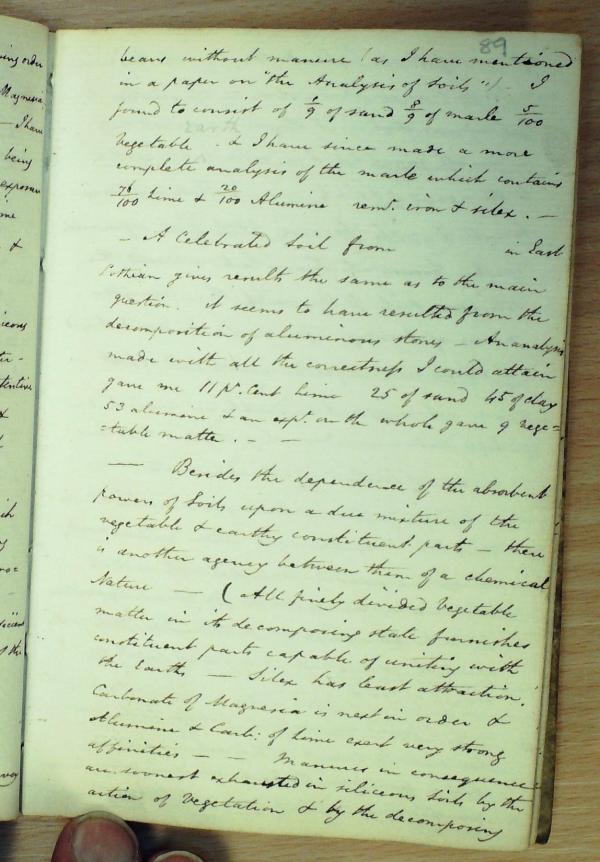 89
beans without manure (as I have mentioned
in a paper on "the Analysis of Soils") - I
found to consist of 1/9 of sand 8/9 of marle 5/100
vegetable earth
& I have since made a more
complete analysis of the marle which contains
/100 Lime & 20/100 Alumine remr. iron & silex. -
- A Celebrated Soil from in East
Lothian gives results the same as to the main
question. it seems to have resulted from the
decomposition of aluminous stones - An analysis
made with all the correctness I could attain
gave me 11 pr. Cent Lime 25 of sand 45 of clay
53 alumine & an expt. on the whole gave 9 vege=
=table matter. - -
- Besides the dependence of the absorbent
powers of Soils upon a due mixture of the
vegetable & earthy constituent parts - there
is another agency between them of a chemical
Nature - (All finely divided vegetable
matter in its decomposing state furnishes
constituent parts capable of uniting with
the Earths - Silex has least attraction.
Carbonate of Magnesia is next in order &
Alumine & Carb: of lime exert very strong
affinities - - Manures in consequence
are soonest exhausted in siliceous soils by the
action of vegetation & by the decomposing
ing order
Magnesia
- I have
being
exposure
me
&
&
of the